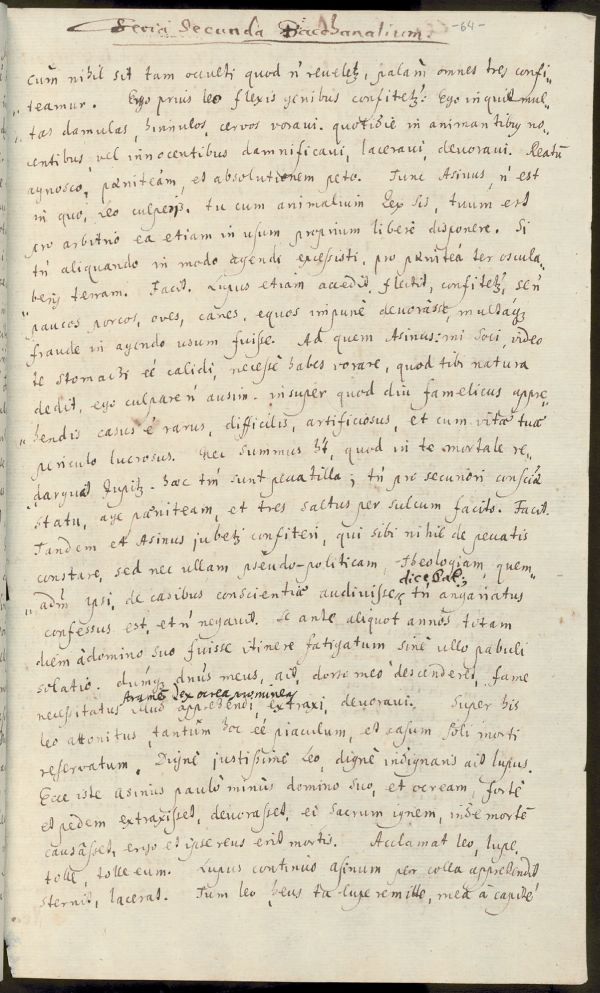 -64-
Feria Secunda Bacchanalium.
cum nihil sit tam occulti quod ñ reveletʒ, palam omnes tres confi-
teamur. Ego prius leo flexis genibus confitetʒ: Ego inquit mul-
tas damulas, hinnulos, cervos voravi. quotidie in animantibʒ no-
centibus, vel innocentibus damnificavi, laceravi, devoravi. Reatũ
agnosco, pœniteam, et absolutionem peto. Tunc Asinus, ñ est
in quo, Leo culperis. tu cum animalium Rex sis, tuum est
pro arbitrio ea etiam in usum proprium liberè disponere. Si
tñ aliquando in modo agendi excessisti, pro pœnitea ter oscula-
beris terram. Facit. Lupus etiam accedit, flectit, confitetʒ, se ñ
paucos porcos, oves, canes, equos impunè devorâsse, multaqʒ
fraude in agendo usum fuisse. Ad quem Asinus: mi Soci, video
te stomachi eẽ calidi, necesse habes vorare, quod tibi natura
dedit, ego culpare ñ ausim. insuper quod diu famelicus appre-
hendis casus ẽ rarus, difficilis, artificiosus, et cum vitæ tuæ
periculo lucrosus. nec summus quod in te mortale re-
darguat Jupitʒ. hæc tñ sunt peccatilla; tñ pro securiori consciæ
statu, age pœniteam, et tres saltus per sulcum facito. Facit.
Tandem et Asinus jubetʒ confiteri, qui sibi nihil de peccatis
constare, sed nec ullam pseudo-politicam, Theologiam, quem-
adm̃ ipsi, de casibus conscientiæ audivisse dicebat; tñ angariatus
confessus est, et ñ negavit. Se ante aliquot annos totam
diem â domino suo fuisse itinere fatigatum sinè ullo pabuli
solatio. dumqʒ dñus meus, ait, dorso meo descenderet, fame
necessitatus stramẽ ex ocrea prominens apprehendi, extraxi, devoravi. Super his
leo attonitus, tantum hoc eẽ piaculum, et casum soli morti
reservatum. Dignè justissimè Leo, dignè indignaris ait lupus.
Ecce iste Asinus paulò minùs domino suo, et ocream, fortè
et pedem extraxisset, devorasset, ei sacrum ignem, inde mortẽ
causâsset, ergo et ipse reus erit mortis. Acclamat leo, lupe,
tolle, tolle eum. Lupus continuò asinum per colla apprehendit
sternit, lacerat. Tum leo heus tu lupe remitte, mea â capite